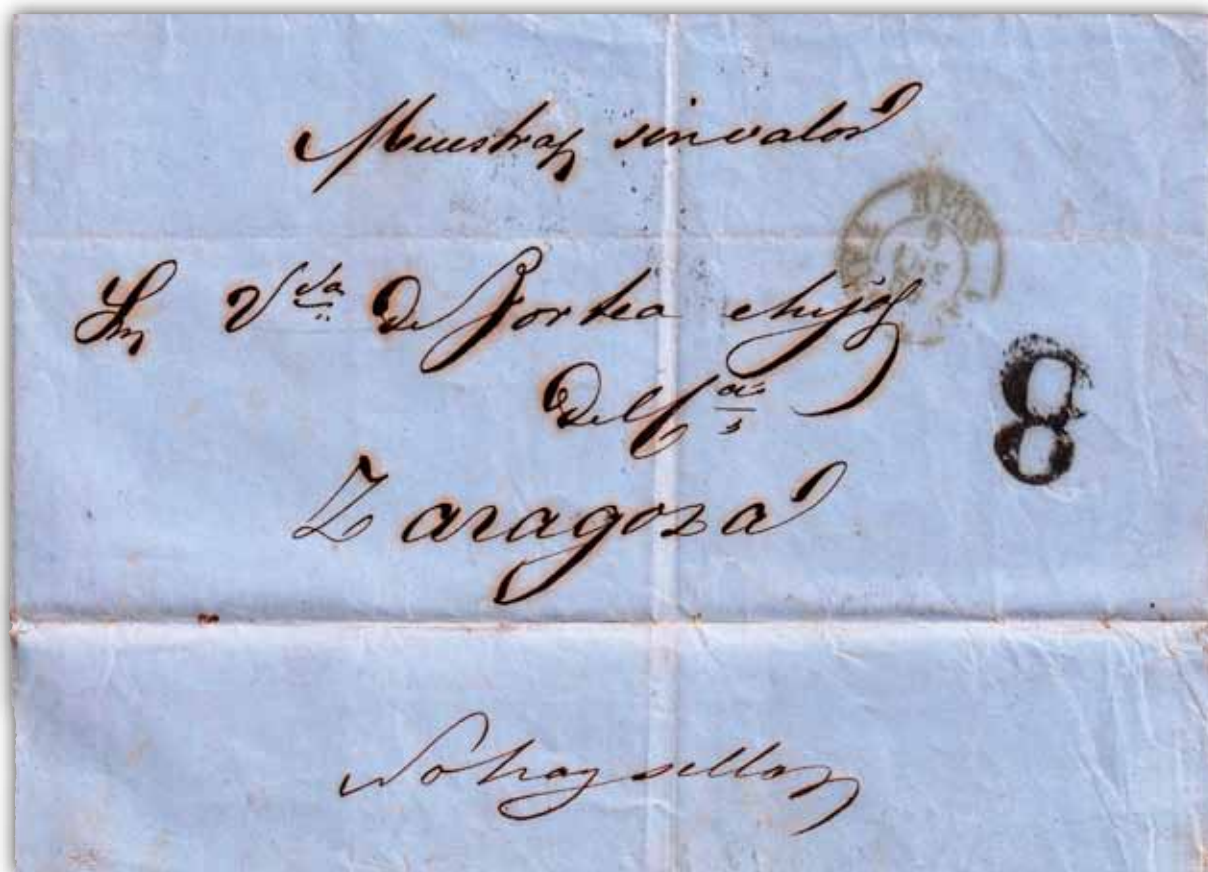 Muestras sin valor
Sra Vda de Fortea e hijos
Zaragoza
No hay sellos
8